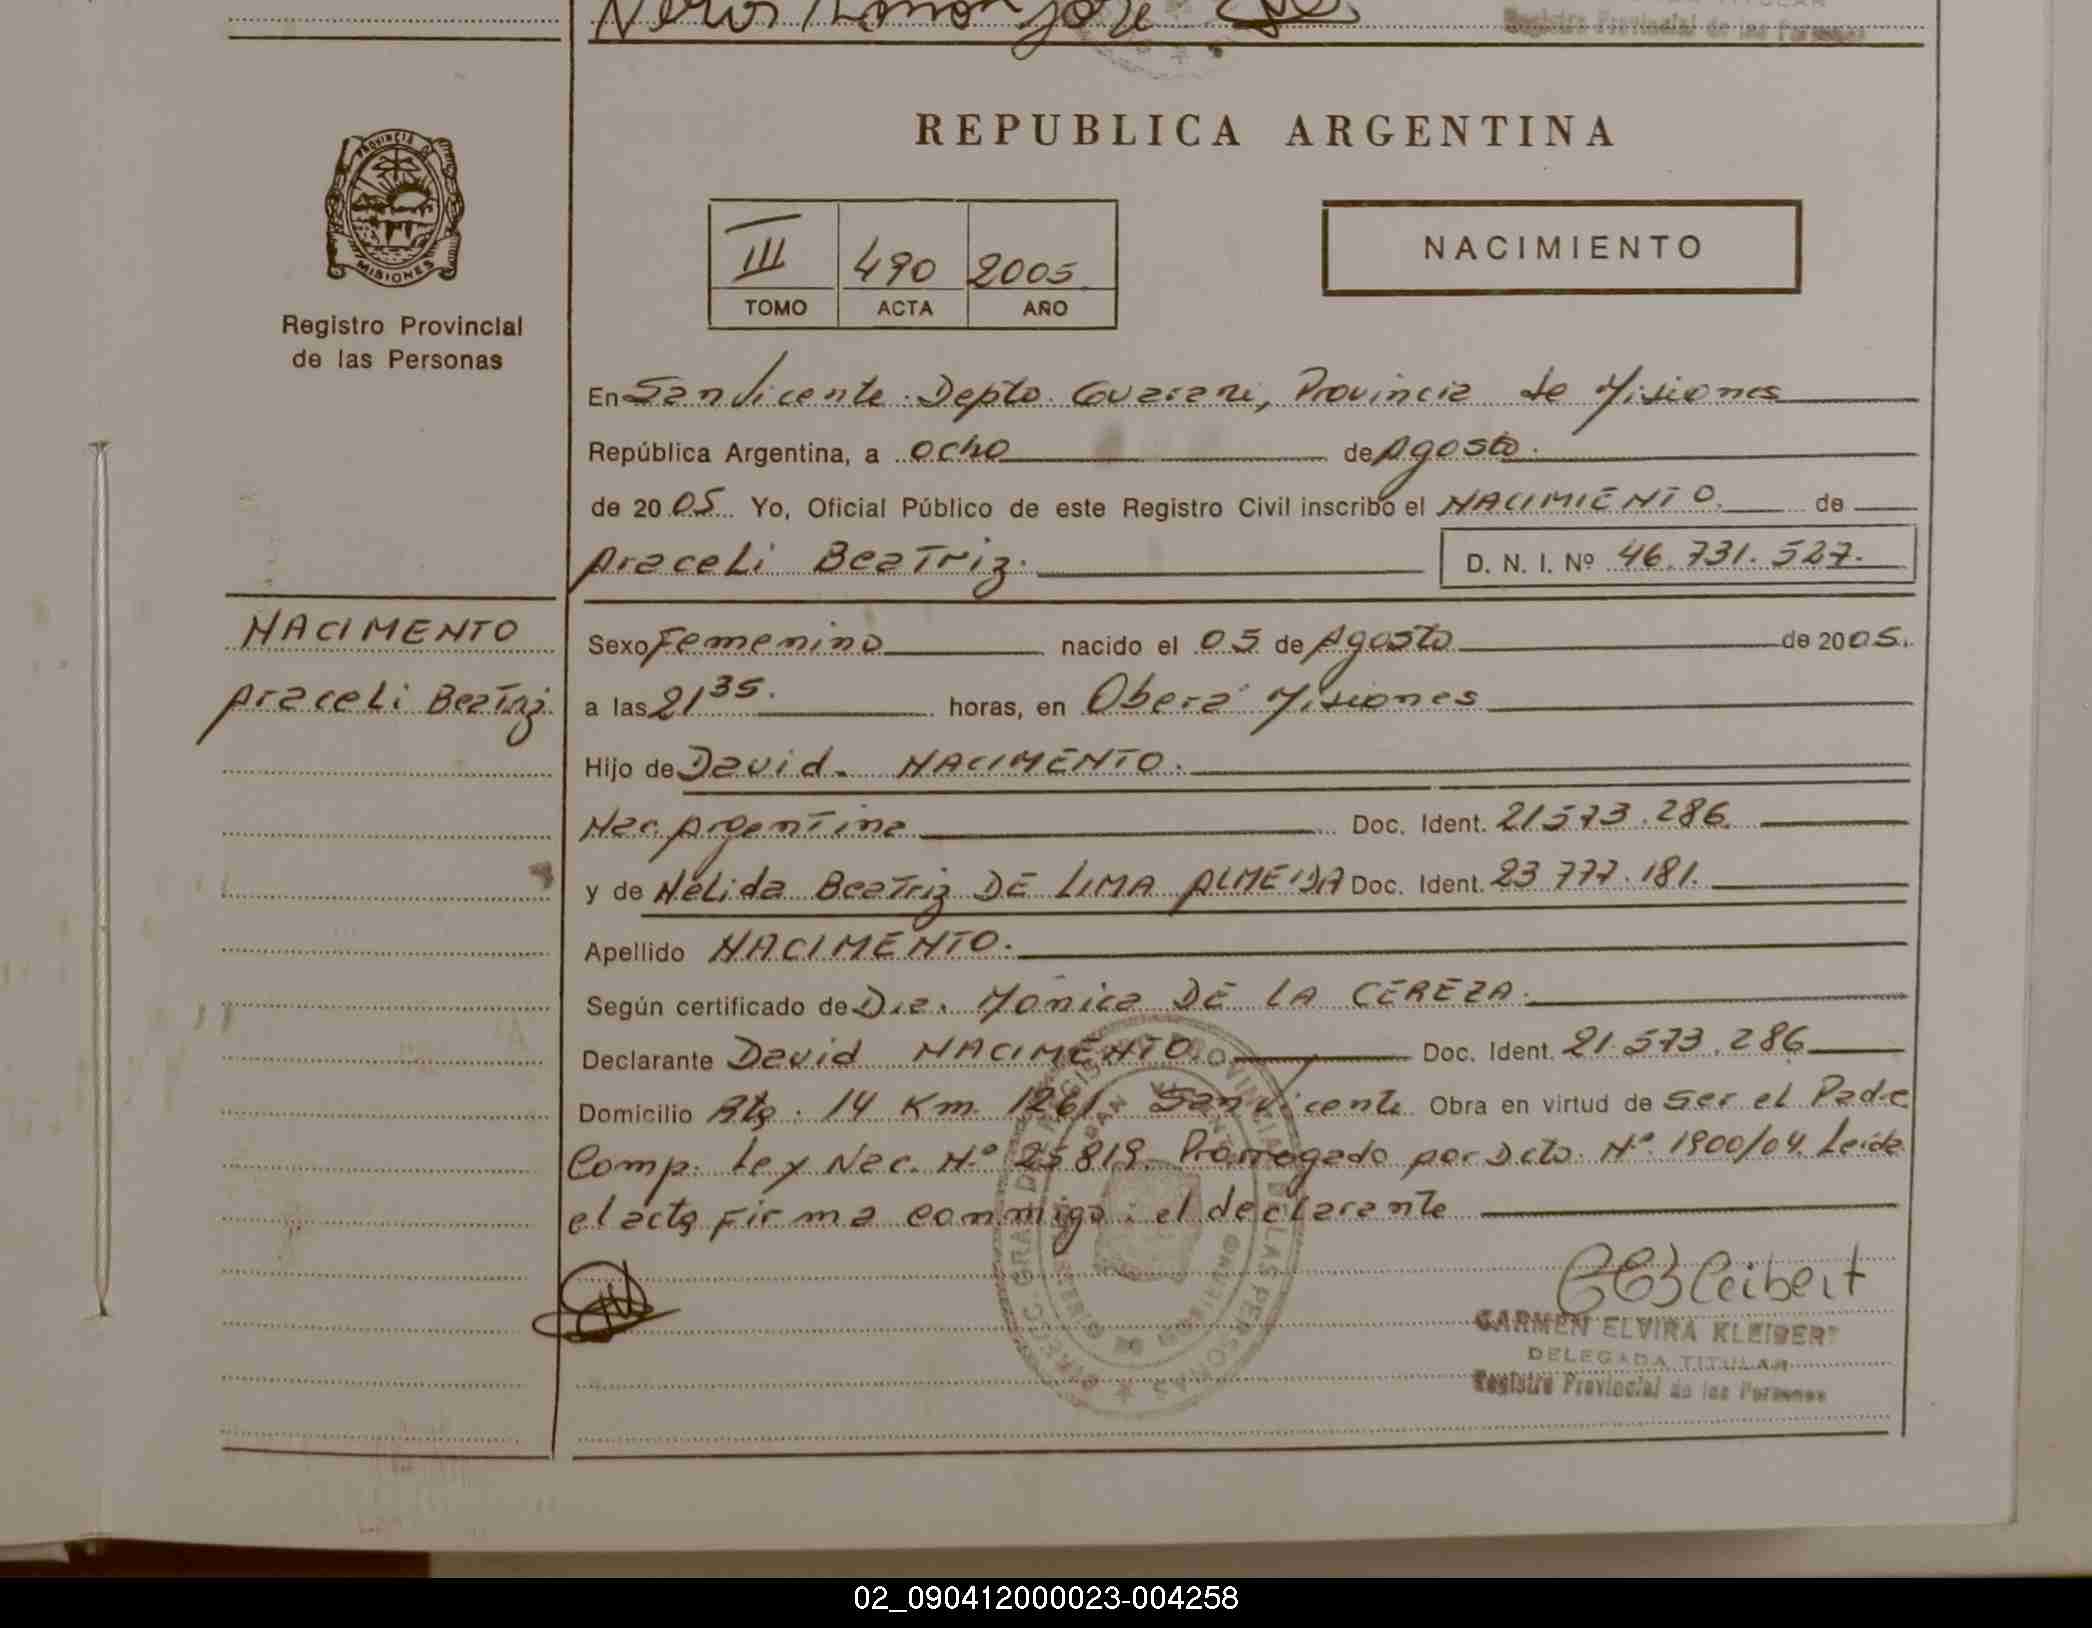 Ramon Jose
Registro Provincial de las Personas
REPUBLICA ARGENTINA
PROVINCIA DE
MISIONES
Registro Provincial
de las Personas
III 490 2005
TOMO ACTA AÑO
NACIMIENTO
En San Vicente Depto. Guarani, Provincia de Misiones
República Argentina, a ocho de Agosto.
de 2005. Yo, Oficial Público de este Registro Civil inscribo el NACIMIENTO. de
Araceli Beatriz. D. N. I. Nº 46.731.527.
NACIMENTO
Araceli Beatriz.
Sexo Femenino nacido el 05 de Agosto de 2005.
a las 21 35. horas, en Oberá Misiones
Hijo de David. NACIMENTO.
Nac. Argentina Doc. Ident. 21573.286.
y de Nélida Beatriz DE LIMA ALMEIDA Doc. Ident. 23 777.181.
Apellido NACIMENTO.
Según certificado de Dra. Mónica DE LA CEREZA.
Declarante David NACIMENTO. Doc. Ident. 21.573.286
Domicilio Rta. 14 Km. 1261. San Vicente Obra en virtud de ser el Padre
Comp. Ley Nac. N.º 25819. Prorrogado por Dcto. Nº. 1900/04. Leída
el acta firma conmigo: el declarante
CARMEN ELVIRA KLEIBERT
DELEGADA TITULAR
Registro Provincial de las Personas
02_090412000023-004258